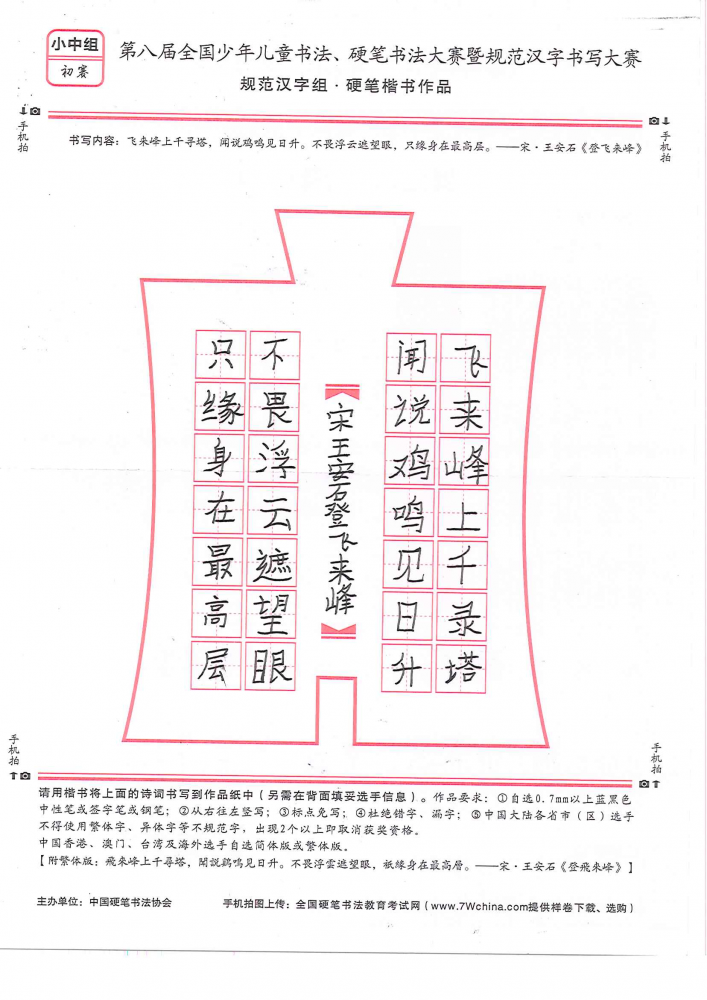 小中组
初赛
第八届全国少年儿童书法、硬笔书法大赛暨规范汉字书写大赛
规范汉字组·硬笔楷书作品
手机拍
手机拍
书写内容：飞来峰上千寻塔，闻说鸡鸣见日升。不畏浮云遮望眼，只缘身在最高层。——宋·王安石《登飞来峰》
飞来峰上千录塔
闻说鸡鸣见日升
宋王安石登飞来峰
不畏浮云遮望眼
只缘身在最高层
手机拍
手机拍
请用楷书将上面的诗词书写到作品纸中（另需在背面填妥选手信息）。作品要求：①自选0.7mm以上蓝黑色
中性笔或签字笔或钢笔；②从右往左竖写；③标点免写；④杜绝错字、漏字；⑤中国大陆各省市（区）选手
不得使用繁体字、异体字等不规范字，出现2个以上即取消获奖资格。
中国香港、澳门、台湾及海外选手自选简体版或繁体版。
【附繁体版：飛來峰上千尋塔，聞説鷄鳴見日升。不畏浮雲遮望眼，祇緣身在最高層。——宋·王安石《登飛來峰》】
主办单位：中国硬笔书法协会
手机拍图上传：全国硬笔书法教育考试网（www.7Wchina.com提供样卷下载、选购）